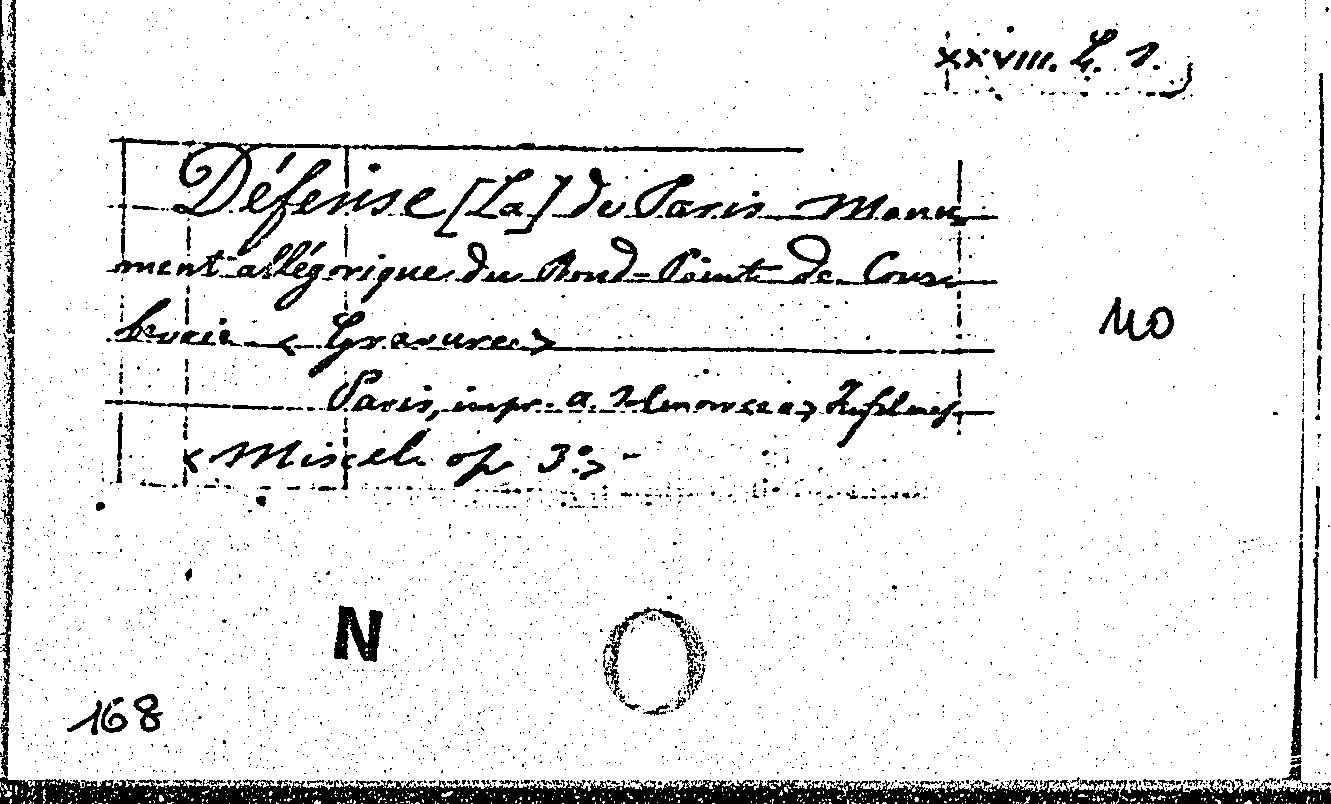 XXVIII. G. 1.
Défense [La] de Paris Monu
ment allégorique du Rond-Point de Cour
bevoie < Gravure >
Paris, impr. A.
< Miscel. op 3.° > -
110
N
168